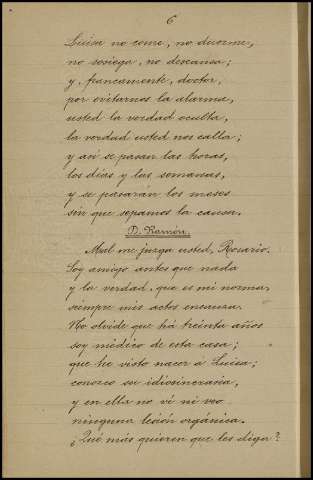 6
Luisa no come, no duerme,
no sosiega, no descansa;
y, francamente, doctor,
por evitarnos la alarma,
usted la verdad oculta,
la verdad usted nos calla;
y así se pasan las horas,
los días y las semanas,
y se pasarán los meses
sin que sepamos la causa.
D. Ramón.
Mal me juzga usted, Rosario.
Soy amigo antes que nada
y la verdad, que es mi norma,
siempre mis actos encauza.
No olvide que há treinta años
soy médico de esta casa;
que he visto nacer á Luisa;
conozco su idiosincrasia,
y en ella no ví ni veo
ninguna lesión orgánica.
¿Qué más quieren que les diga?